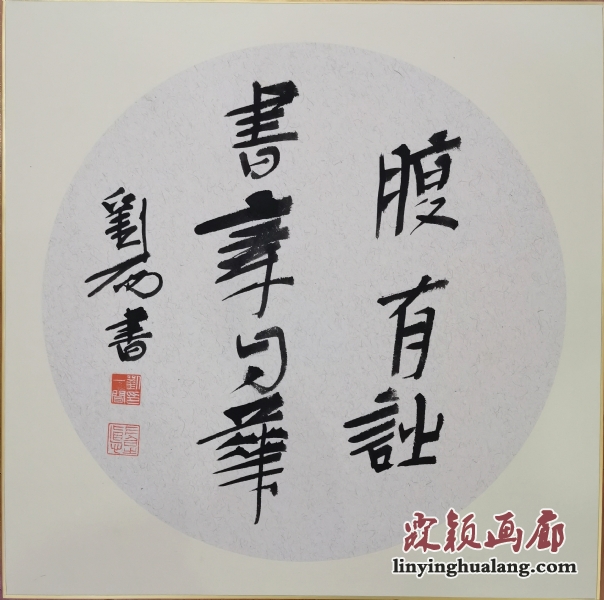 腹有詩
書氣自華
劉 書
霖颖画廊
linyinghualang.com